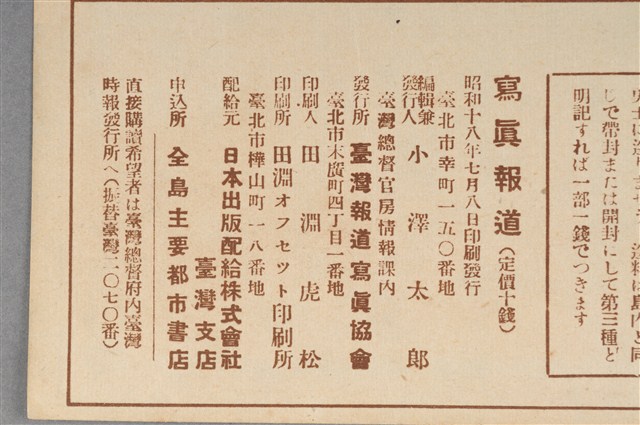 して帶封または開封にして第三種と
明記すれば一部一錢でつきます
寫眞報道(定價十錢)
昭和十八年七月八日印刷發行
臺北市幸町一五〇番地
編輯兼發行人 小澤太郎
臺灣總督官房情報課內
發行所 臺灣報道寫眞協會
臺北市末廣町四丁目一番地
印刷人 田淵虎松
印刷所 田淵オフセット印刷所
臺北市樺山町一八番地
配給元 日本出版配給株式會社
臺灣支店
申込所 全島主要都市書店
直接購讀希望者は臺灣總督府內臺灣
時報發行所へ(振替臺灣二〇七〇番)